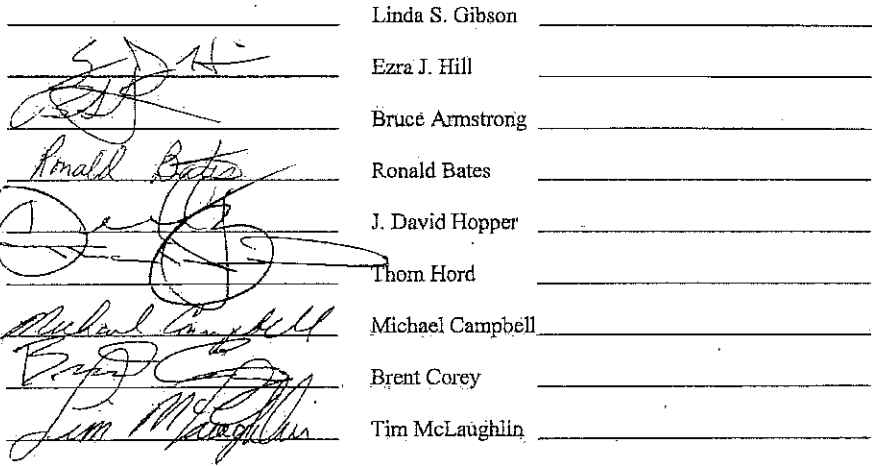 Linda S. Gibson
Ezra J. Hill
Bruce Armstrong
Ronald Bates Ronald Bates
J. David Hopper
Thom Hord
Michael Campbell Michael Campbell
Brent Corey
Tim McLaughlin Tim McLaughlin